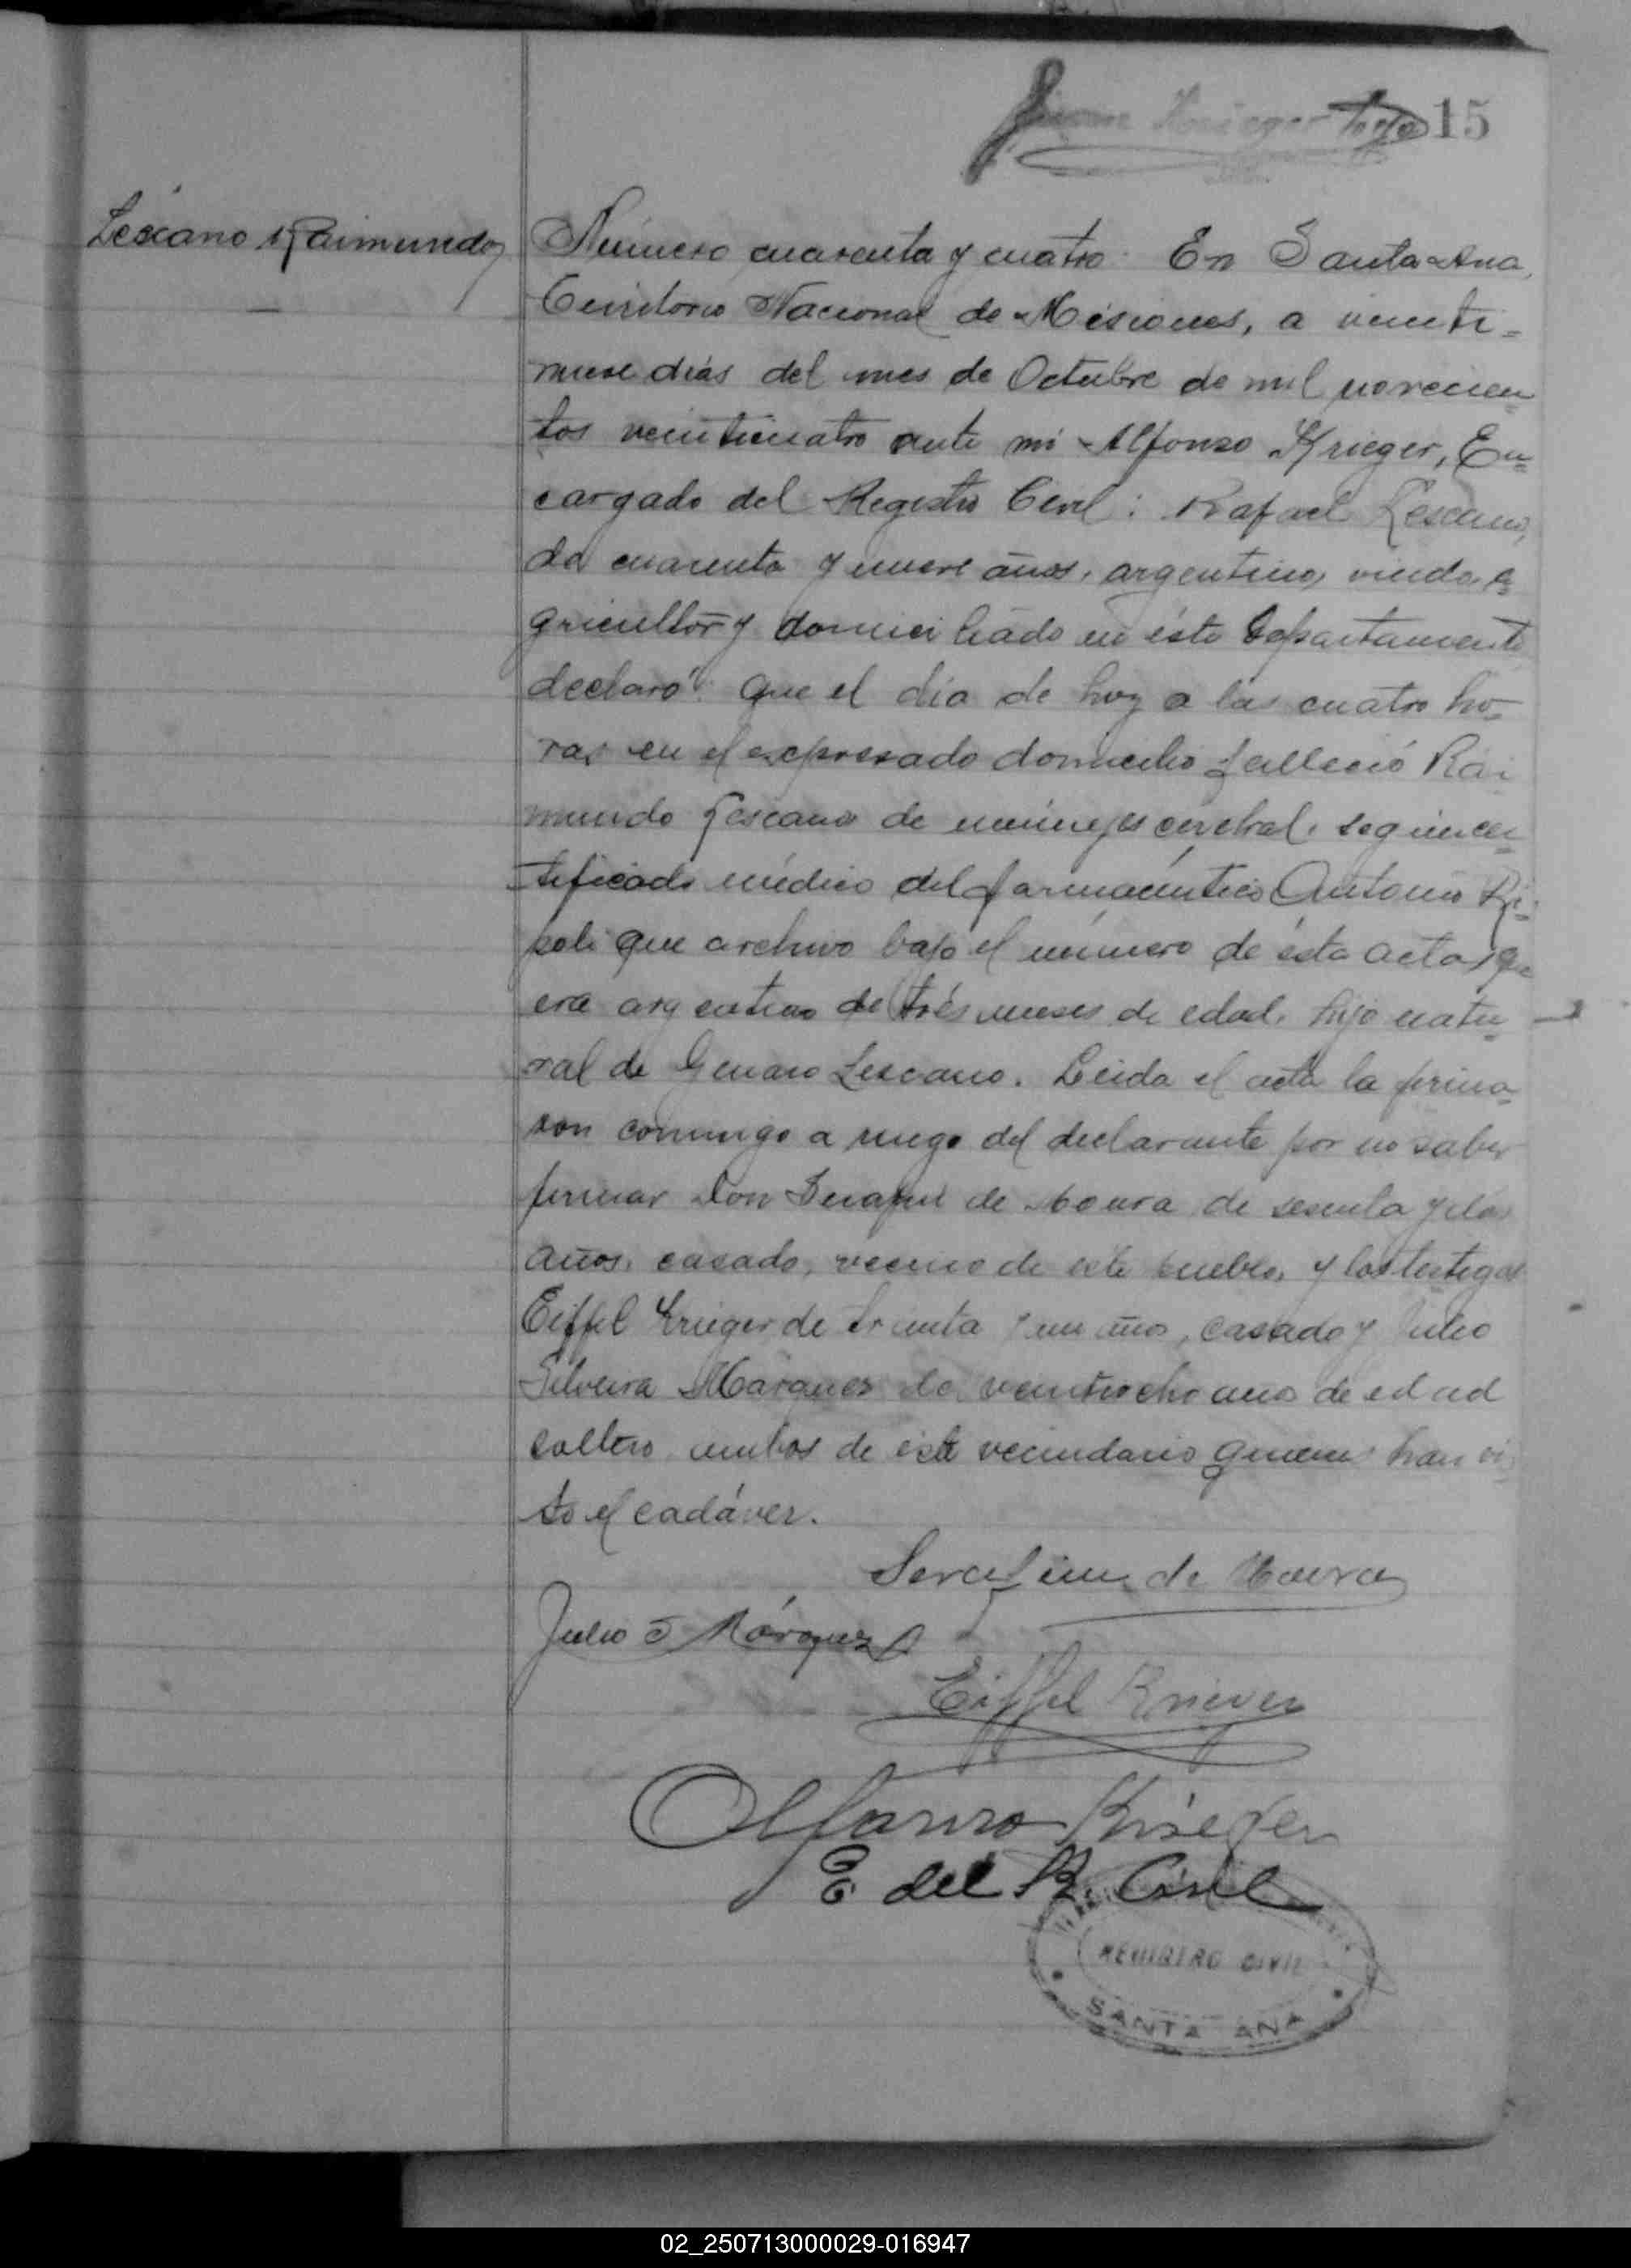 15
Lescano Raimundo
Número cuarenta y cuatro. En Santa Ana,
Territorio Nacional de Misiones, a veinti-
nueve días del mes de Octubre de mil novecien-
tos veinticuatro ante mi Alfonso Krieger, En-
cargado del Registro Civil: Rafael Lescano,
de cuarenta y nueve años, argentino, viudo, a-
gricultor y domiciliado en éste Departamento
declaró: Que el día de hoy a las cuatro ho-
ras en el expresado domicilio falleció Rai
mundo Lescano de cerebral, según cer-
tificado médico del farmacéutico Antonio Ri-
poli que archivo bajo el número de ésta acta; que
era argentino de trés meses de edad, hijo natu-
ral de Genaro Lescano. Leida el acta la firma-
ron conmigo a ruego del declarante por no saber
firmar Don Serafin de Moura de sesenta y dos
años, casado, vecino de este pueblo, y los testigos
Eiffel Krieger de treinta y un años, casado y Julio
Silveira Marques de veintiocho años de edad
soltero ambos de este vecindario quienes han vi-
to el cadáver.
Serafim de Moura
Julio S Márquez
Eiffel Krieger
Alfonso Krieger
E. del R. Civil
REGISTRO CIVIL
SANTA ANA
02_250713000029-016947